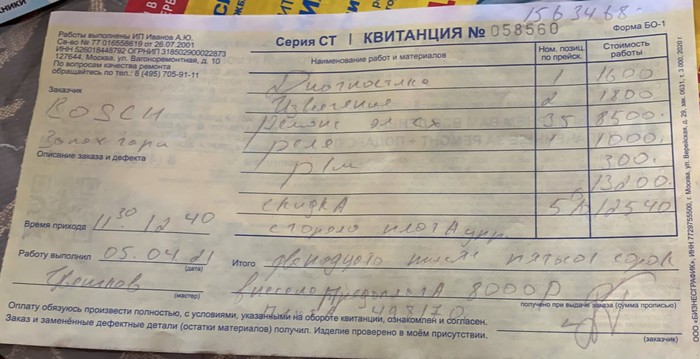 1563468.
Работы выполнены ИП Иванов А.Ю.
Св-во № 77 016558619 от 26.07.2001
ИНН 526018448792 ОГРНИП 318502900022873
127644, Москва, ул. Вагоноремонтная, д. 10
По вопросам качества ремонта
обращайтесь по тел.: 8 (495) 705-91-11
Серия СТ | КВИТАНЦИЯ № 058560
Форма БО-1
Наименование работ и материалов
Ном. позиц. по прейск.
Стоимость работы
Диагностика 1 1600
Извлечение 2 1800
35 8500
реле 1000
р/м 300.
13200.
скидка 5% 12540
сторело плата упр.
Заказчик
BOSCH
Запах гари
Описание заказа и дефекта
Время прихода 11 30 12 40
Работу выполнил 05.04 21
(дата)
(мастер)
Итого двенадцать тысяч пятьсот сорок
внесена предоплата 8000 р
получено при выдаче заказа (сумма прописью)
Оплату обязуюсь произвести полностью, с условиями, указанными на обороте квитанции, ознакомлен и согласен.
Заказ и замененные дефектные детали (остатки материалов) получил. Изделие проверено в моём присутствии.
(заказчик)
ООО «БИЗНЕСГРАФИК», ИНН 7729755500, г. Москва, ул. Верейская, д. 29, зак. 0631, т. 3 000, 2020 г.